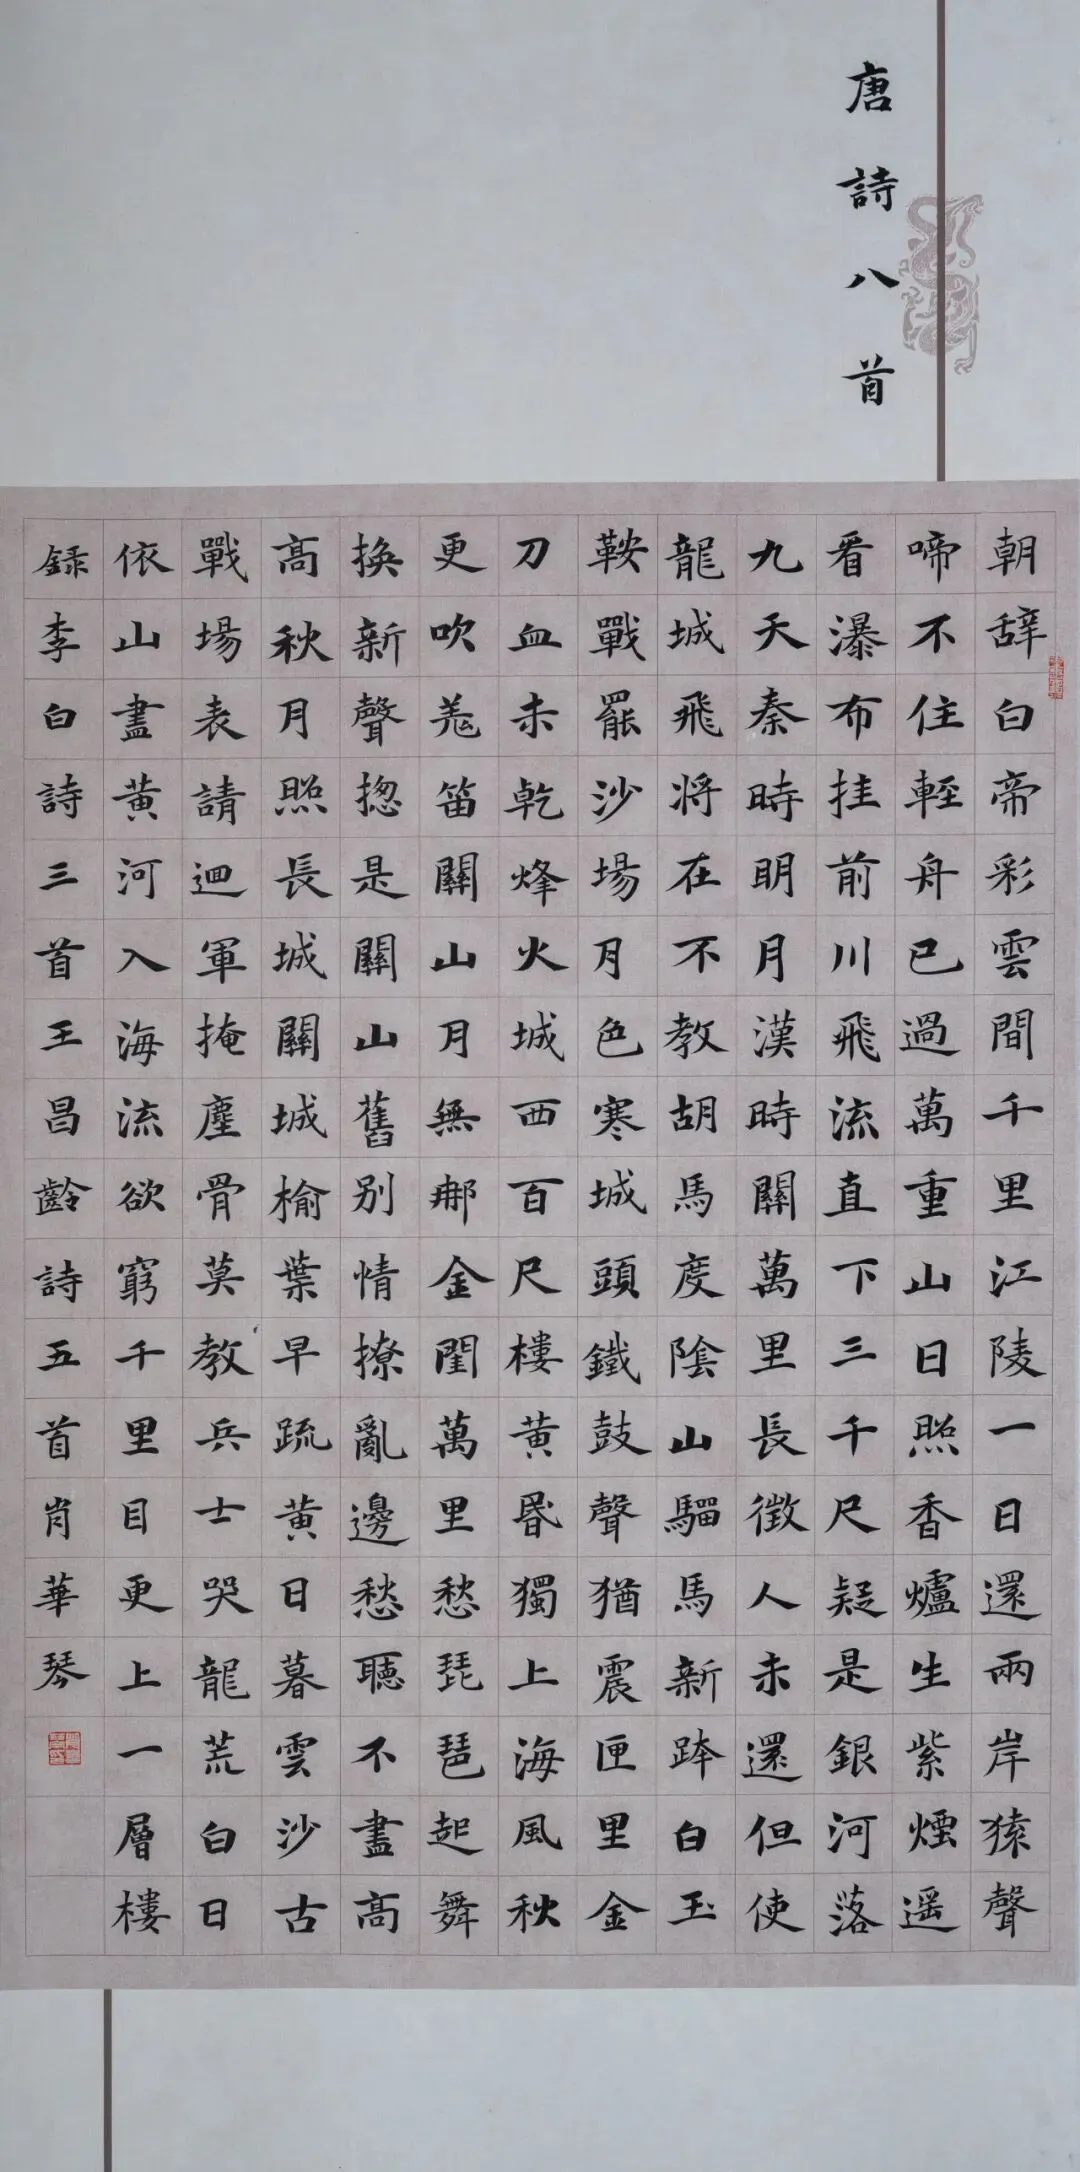 唐詩八首
朝辞白帝彩雲間千里江陵一日還兩岸猿聲
啼不住輕舟已過萬重山日照香爐生紫煙遥
看瀑布挂前川飛流直下三千尺疑是銀河落
九天秦時明月漢時關萬里長徴人未還但使
龍城飛将在不教胡馬度陰山驑馬新跨白玉
鞍戰罷沙場月色寒城頭鐵鼓聲猶震匣里金
刀血未乾烽火城西百尺樓黄昏獨上海風秋
更吹羗笛關山月無那金閨萬里愁琵琶起舞
換新聲揔是關山舊别情撩亂邊愁聽不盡高
高秋月照長城關城榆葉早疏黄日暮雲沙古
戰場表請迴軍掩塵骨莫教兵士哭龍荒白日
依山盡黄河入海流欲窮千里目更上一層樓
録李白詩三首王昌齡詩五首肖華琴